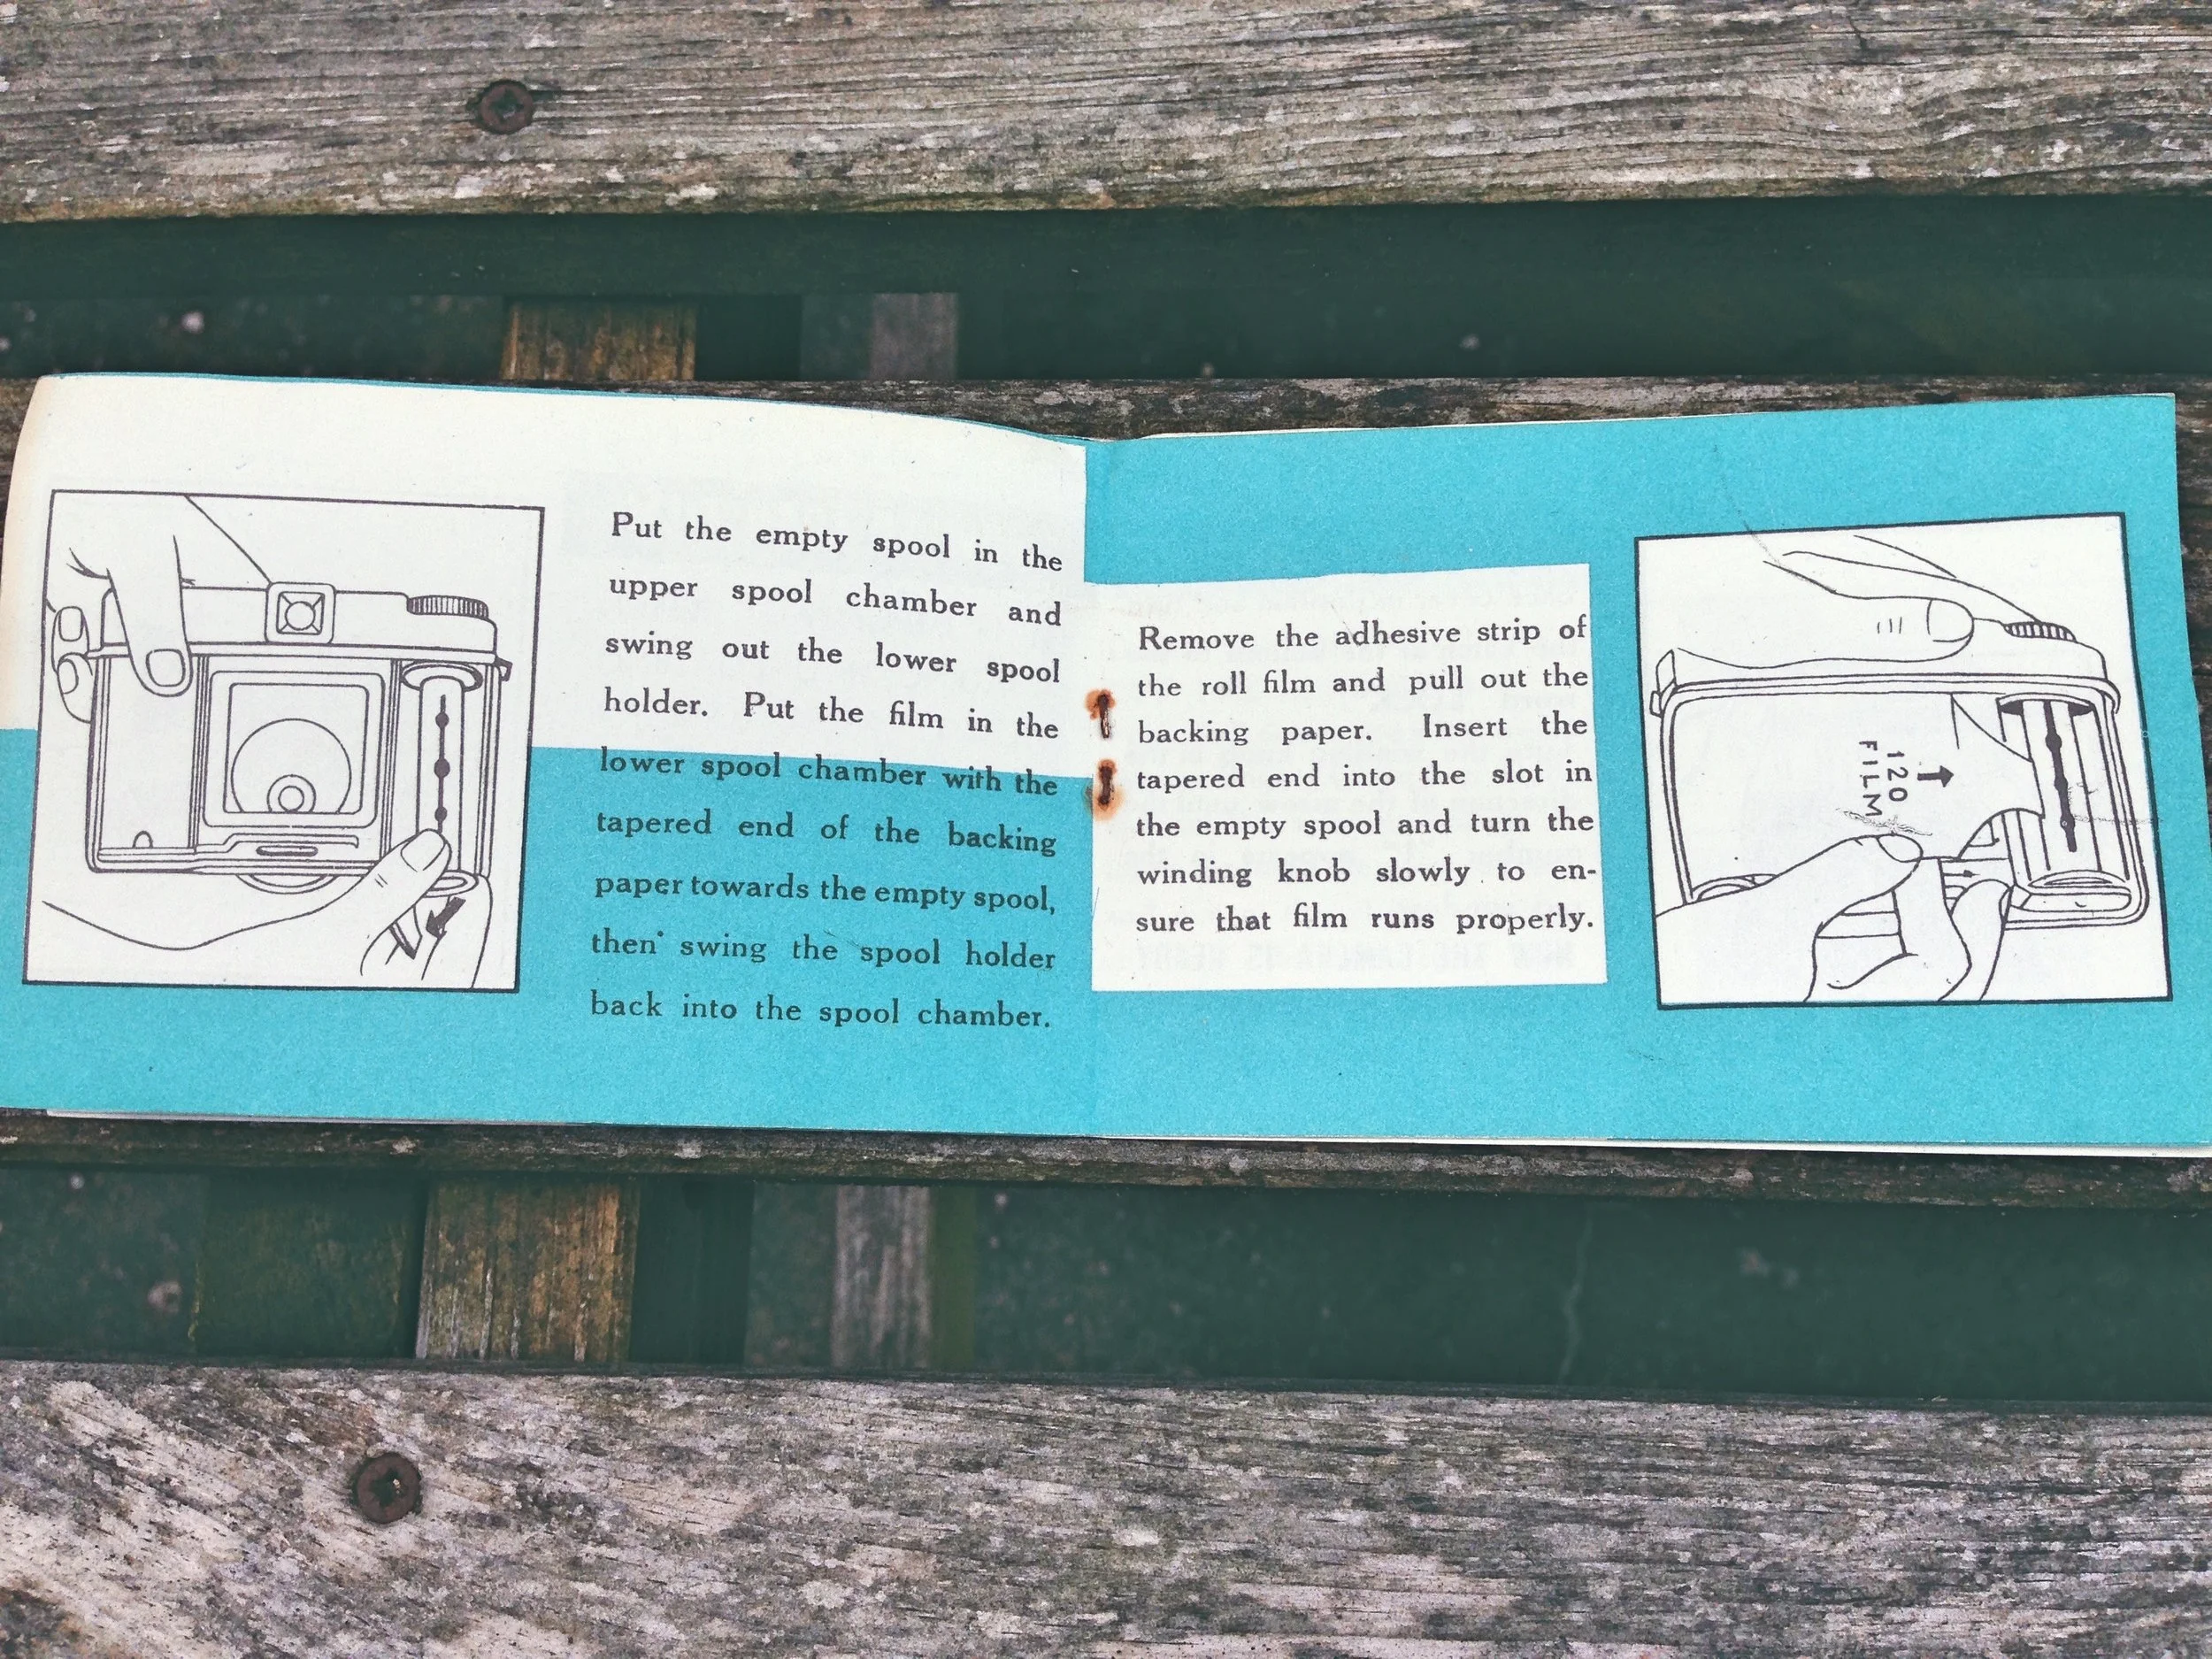 Put the empty spool in the
upper spool chamber and
swing out the lower spool
holder. Put the film in the
lower spool chamber with the
tapered end of the backing
paper towards the empty spool,
then swing the spool holder
back into the spool chamber.
Remove the adhesive strip of
the roll film and pull out the
backing paper. Insert the
tapered end into the slot in
the empty spool and turn the
winding knob slowly to en-
sure that film runs properly.
120
FILM